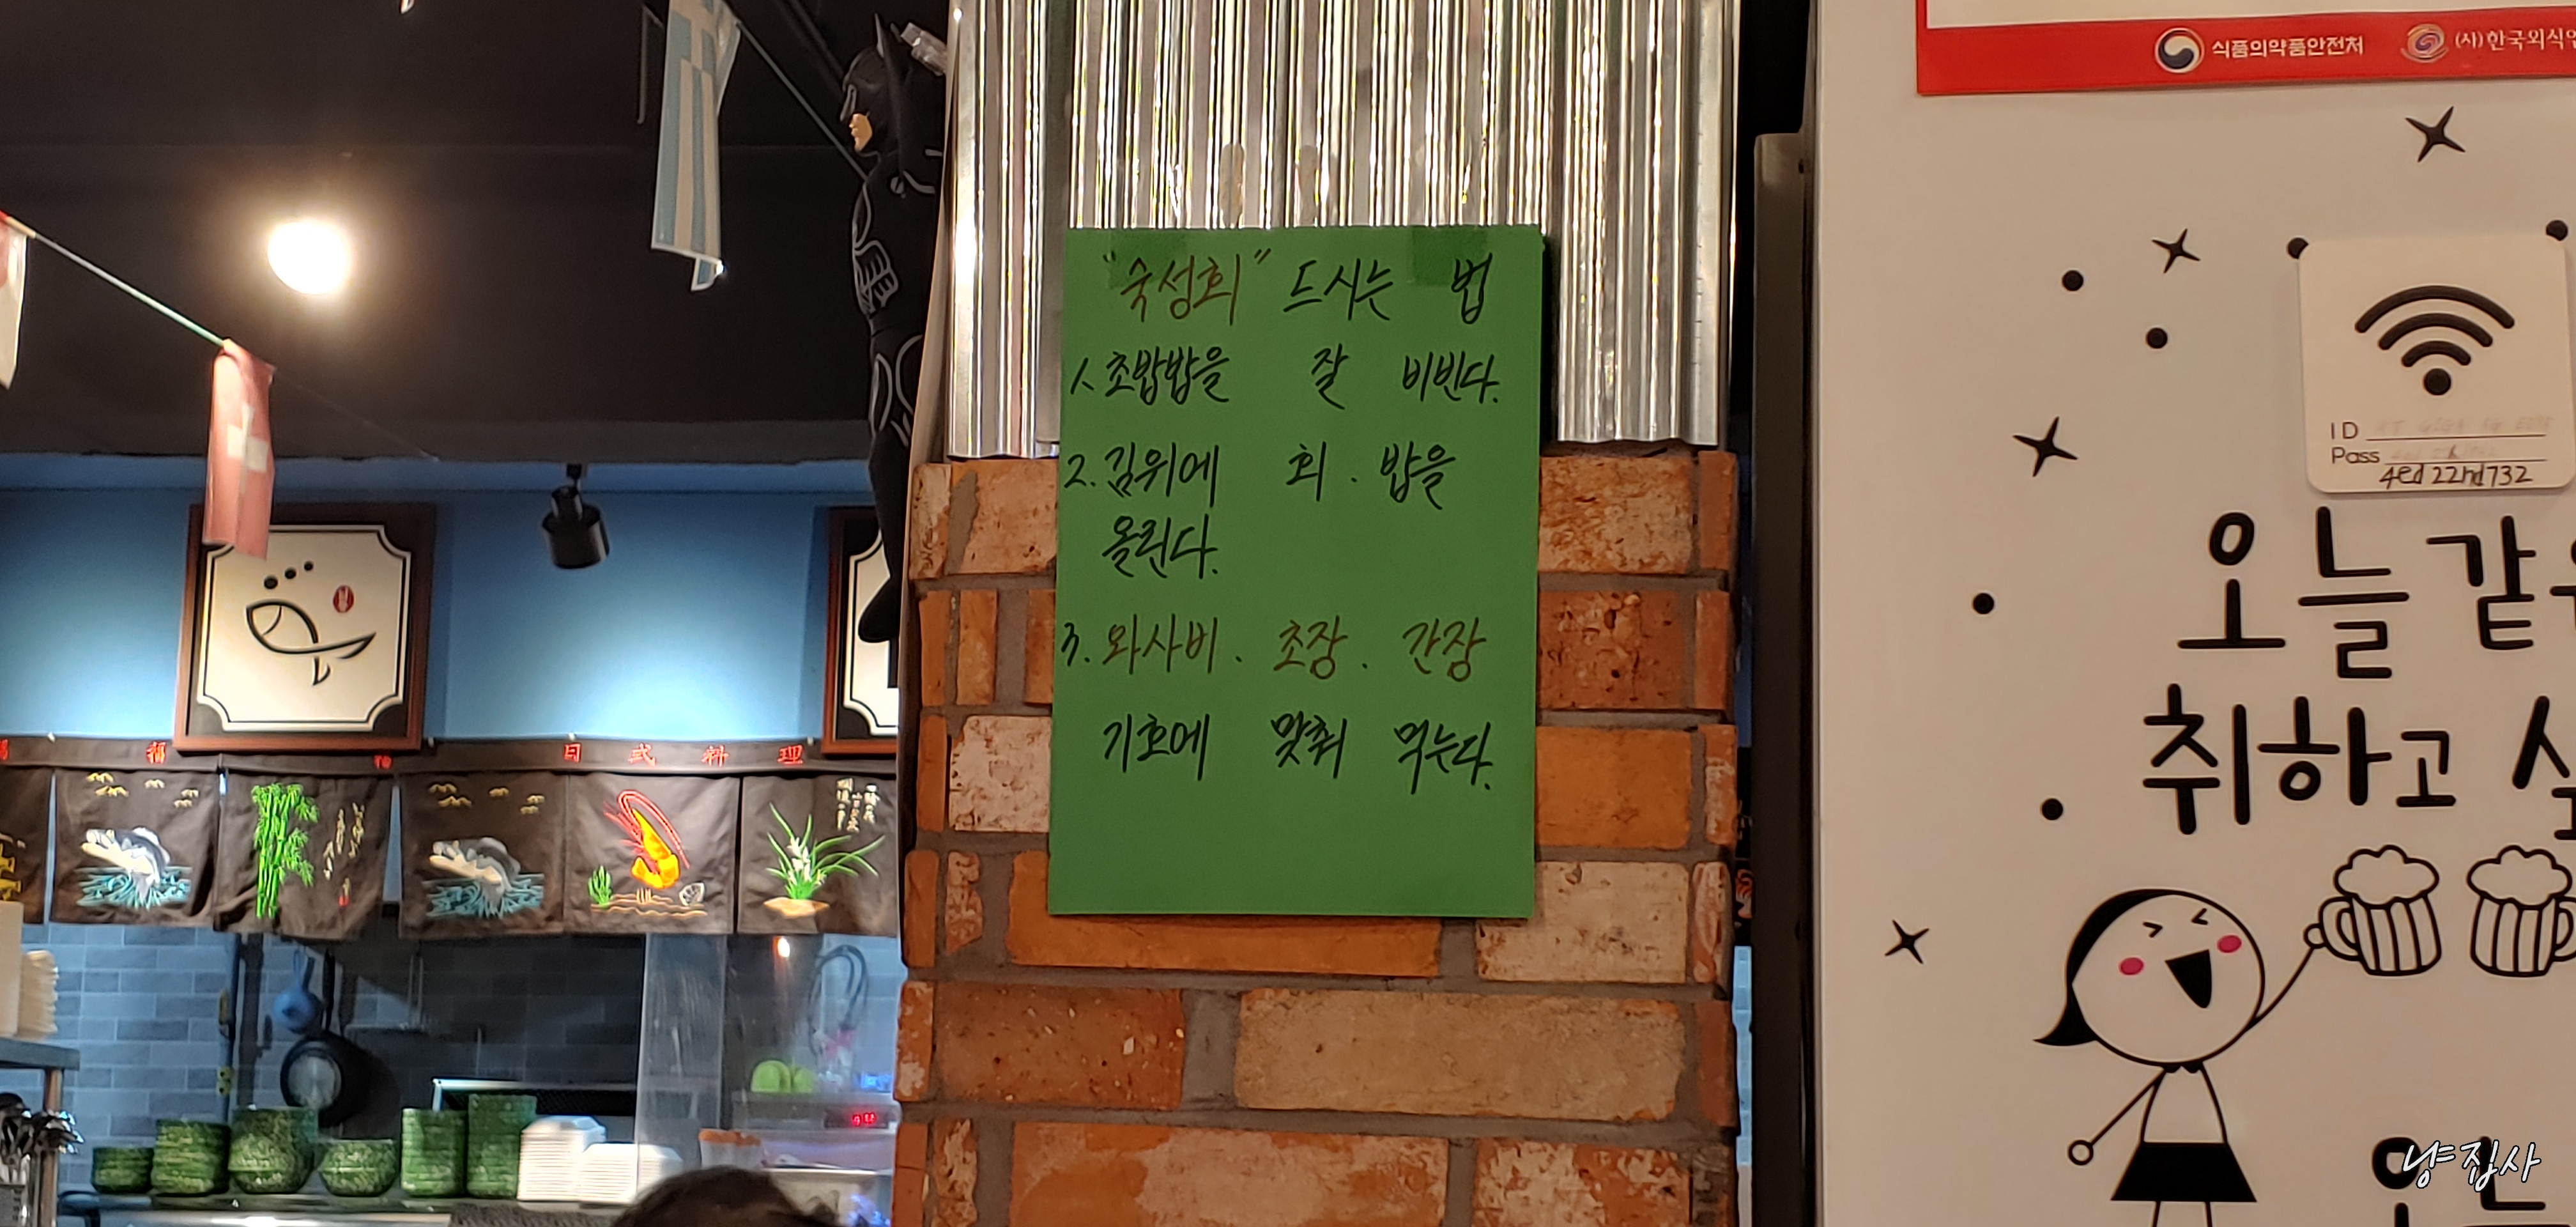 식품의약품안전처
(사)한국외식
"숙성회" 드시는 법
1. 초밥밥을 잘 비빈다.
2. 김위에 회. 밥을
올린다.
3. 와사비. 초장. 간장
기호에 맞춰 먹는다.
ID
Pass
4ed22nd732
오늘 같
취하고
福
福
日式料理
냥집사